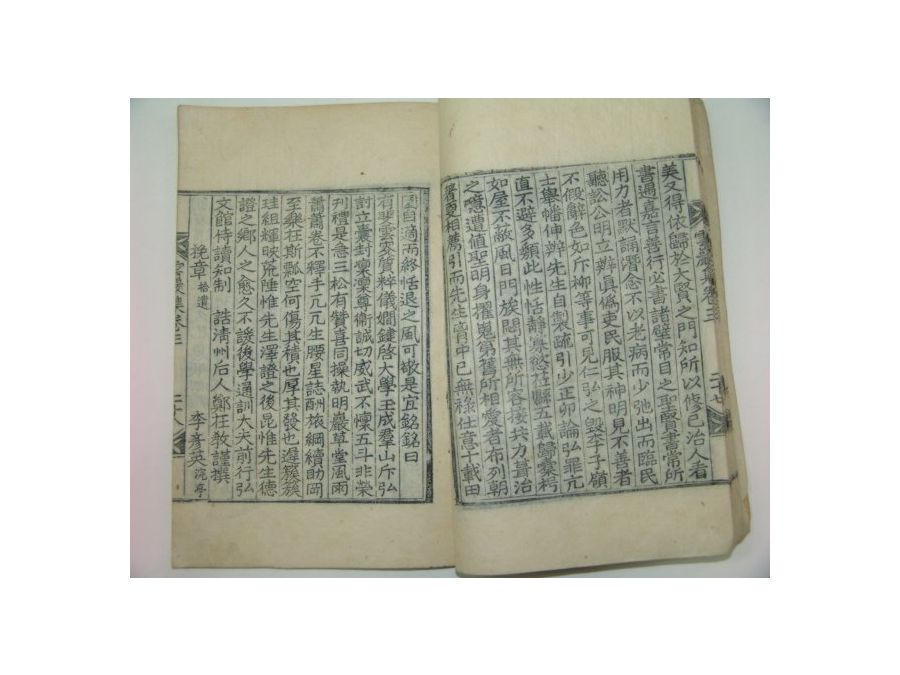 美又得依歸於大賢之門知所以修己治人看
書遇嘉言善行必書諸壁常目之聖賢書常所
用力者默誦潛念不以老病而少弛出而臨民
聽訟公明立辨眞僞吏民服其神明見不善者
不假辭色如斥柳等事可見仁弘之毁李子嶺
士舉幡伸辨先生自製疏引少正卯論弘罪亢
直不避多類此性恬靜 愍莅縣五載歸橐枵
如屋不敵風日門族閔其無所容接共力葺治
之噫遭値聖明身擢 第舊所相愛者布列朝
著更相薦引而先生宦中已無祿仕意十載田
雲巖集卷三
二十七
園自適而終恬退之風可敬是宜銘銘曰
有斐雲來質粹儀閒鍵啓大學壬成羣山斥弘
討立囊封凜凜尊衛誠切威武不懍五斗非榮
列禮是急三松有贊喜同操執明巖草堂風雨
蕭蕭卷不釋手兀兀生腰星誌酬旅綱續助岡
至樂在斯瓢空何傷其積也厚其發也遲簇簇
珪組輝暎荒陲惟先生澤證之後昆惟先生德
證之鄕人之愈久不諼後學通訓大夫前行弘
文館侍讀知制 誥淸州后人鄭在 謹撰
挽章 拾遺
李彦英 浣亭
雲巖集卷三
二十八